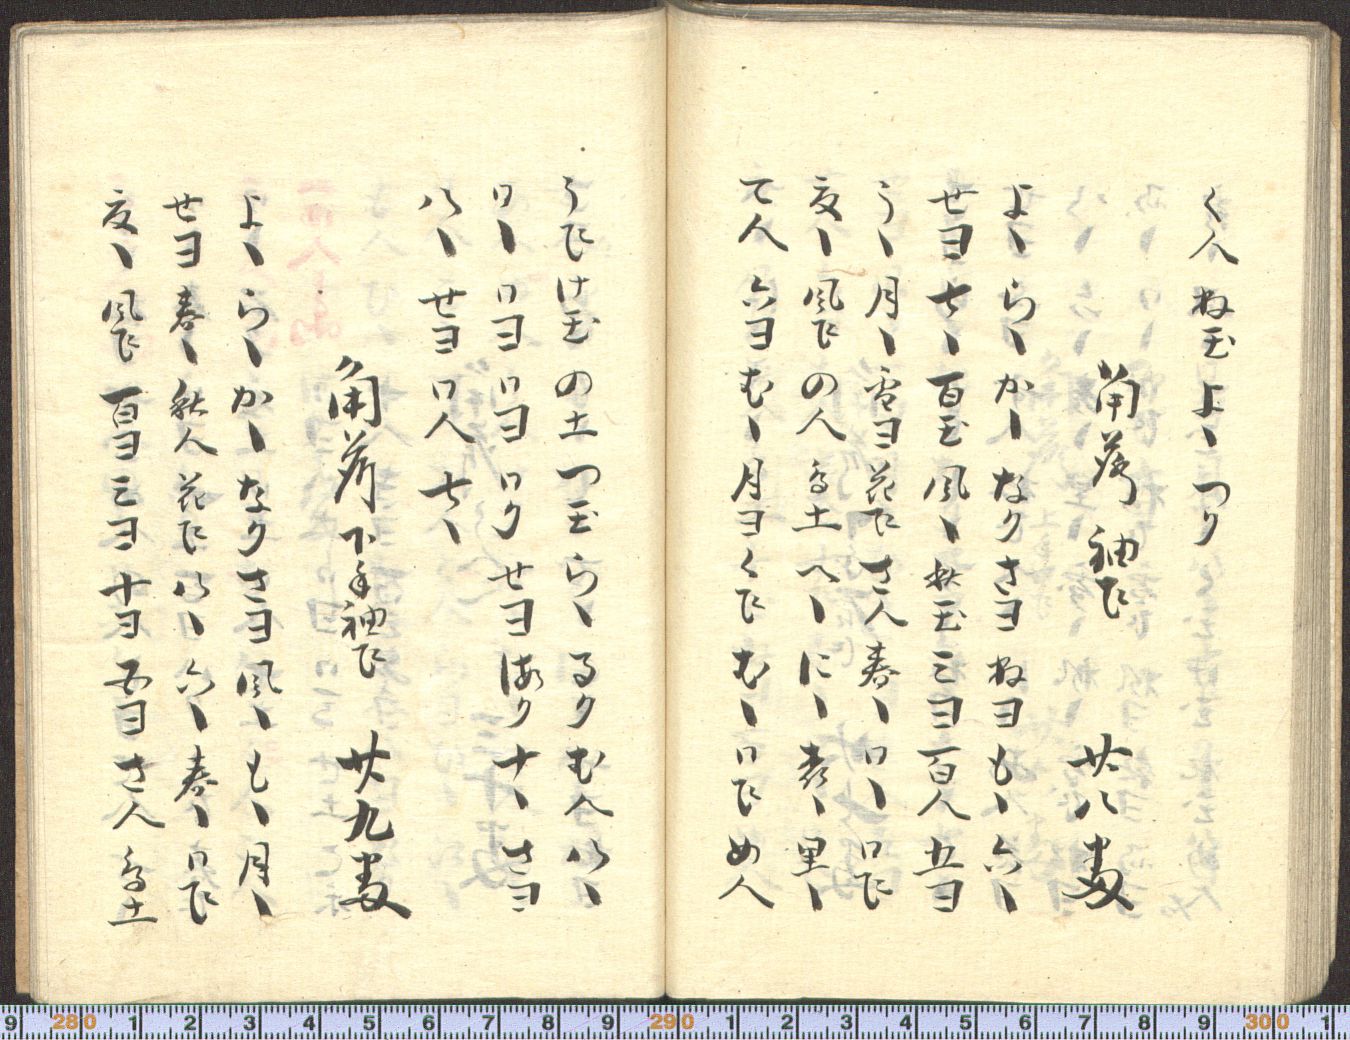 く人 ね玉 よヽ つり
角落 袖下 廿八番
よヽ らヽ かヽ なり さヨ ねヨ もヽ 六ヽ
せヨ 七ヽ 百玉 風ヽ 秋玉 三ヨ 百人 五ヨ
うヽ 月ヽ 雪ヨ 花下 さ人 春ヽ ロヽ ロ下
夜ヽ 風下 の人 る土 へヽ にヽ 春ヽ 里ヽ
て人 六ヨ むヽ 月ヨ く下 むヽ ロ下 め人
う下 け玉 の土 つ玉 らヽ るり む人 いヽ
ロヽ ロヨ ロヨ ロり せヨ ほり 十ヽ さヨ
いヽ せヨ ロ人 七ヽ
角落 下手 袖下 廿九番
よヽ らヽ かヽ なり さヨ 風ヽ もヽ 月ヽ
せヨ 春ヽ 秋人 花下 いヽ 六ヽ 春ヽ ロ下
夜ヽ 風下 百ヨ 三ヨ 十ヨ 五ヨ さ人 る土
9 280 1 2 3 4 5 6 7 8 9 290 1 2 3 4 5 6 7 8 9 300 1